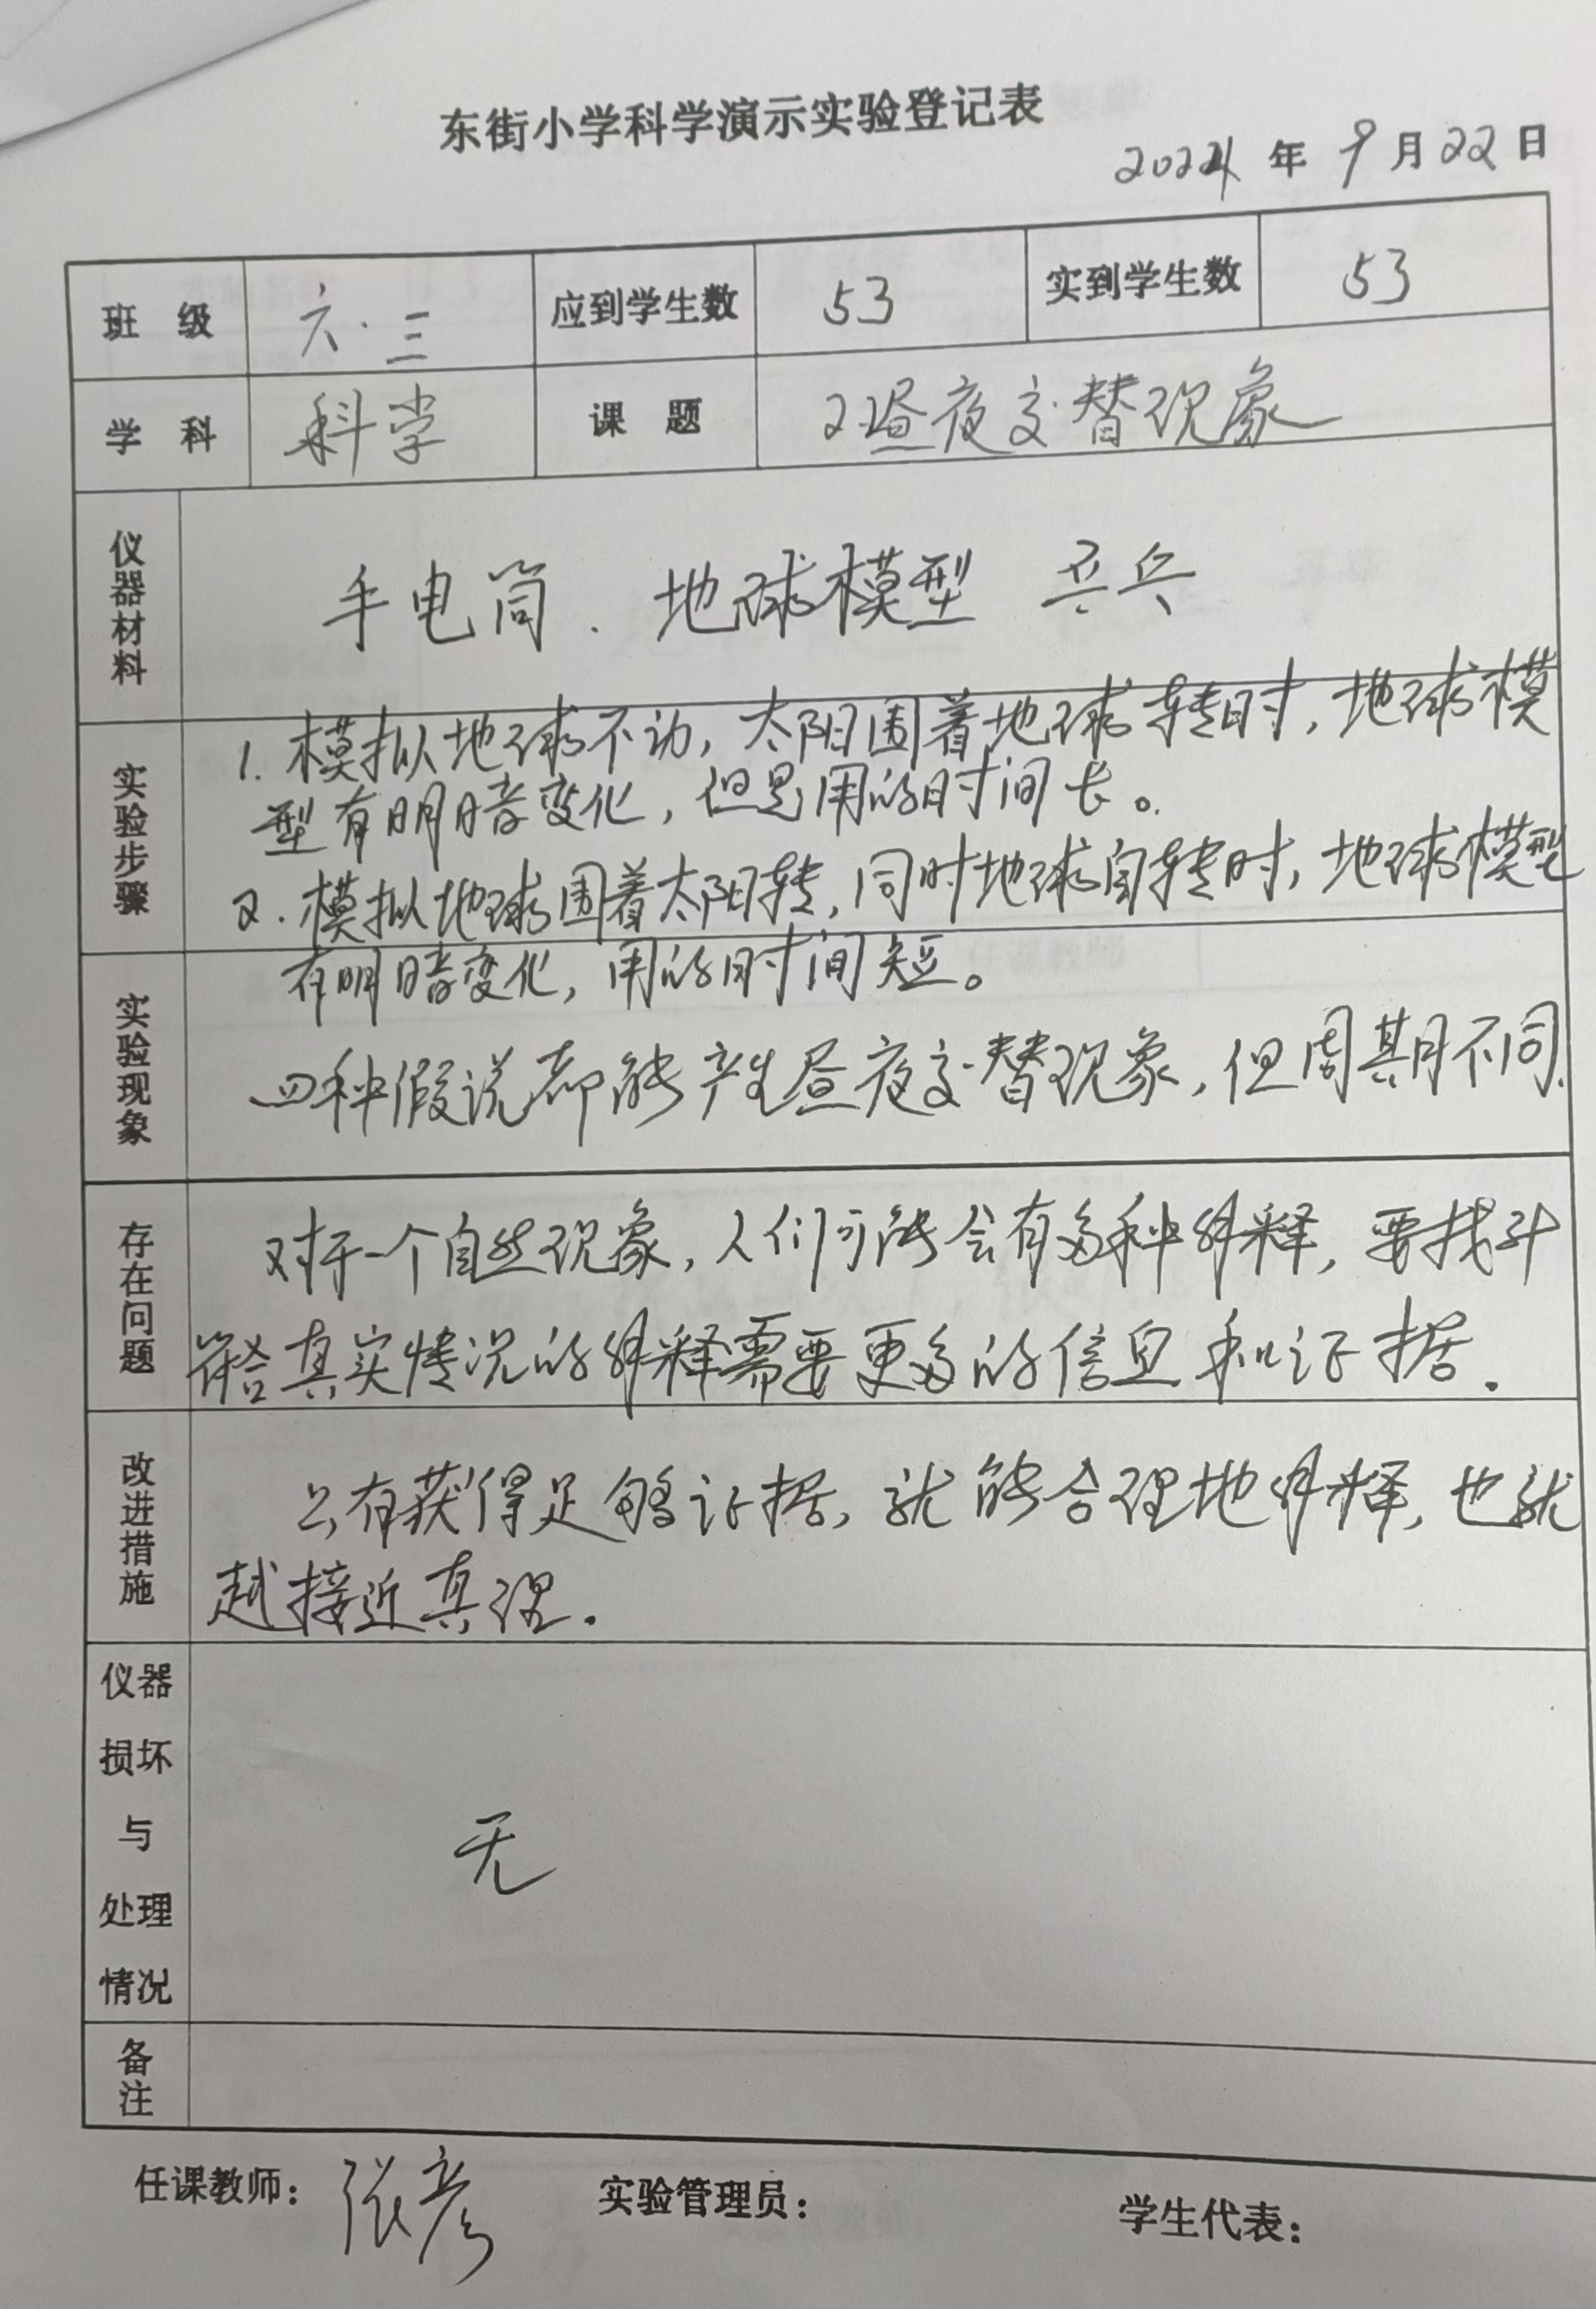 东街小学科学演示实验登记表
2024年9月22日
班级 六.三 应到学生数 53 实到学生数 53
学科 科学 课题 2.昼夜交替现象
仪器材料 手电筒. 地球模型 乒乓
实验步骤
1.模拟地球不动,太阳围着地球转时,地球模
型有明暗变化,但是用的时间长。
2.模拟地球围着太阳转,同时地球自转时,地球模型
有明暗变化,用的时间短。
实验现象
四种假说都能产生昼夜交替现象,但周期不同.
存在问题
对于一个自然现象,人们可能会有多种解释,要找到
符合真实情况的解释需要更多的信息和证据.
改进措施
只有获得足够证据,就能合理地解释,也就
越接近真理.
仪器
损坏
与
处理
情况
无
备注
任课教师:张彦 实验管理员: 学生代表: